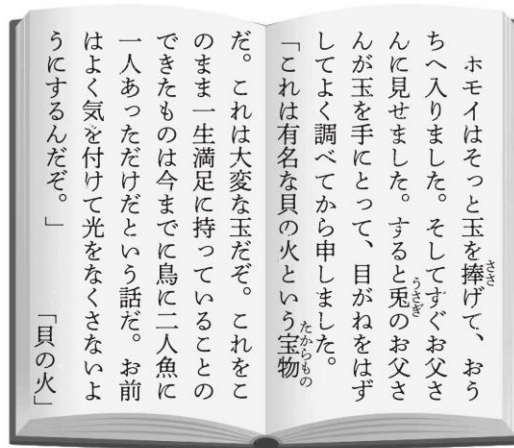 ホモイはそっと玉を捧げて、おう
ささ
ちへ入りました。そしてすぐお父さ
んに見せました。すると兎のお父さ
うさぎ
んが玉を手にとって、目がねをはず
してよく調べてから申しました。
「これは有名な貝の火という宝物
たからもの
だ。これは大変な玉だぞ。これをこ
のまま一生満足に持っていることの
できたものは今までに鳥に二人魚に
一人あっただけだという話だ。お前
はよく気を付けて光をなくさないよ
うにするんだぞ。」
「貝の火」